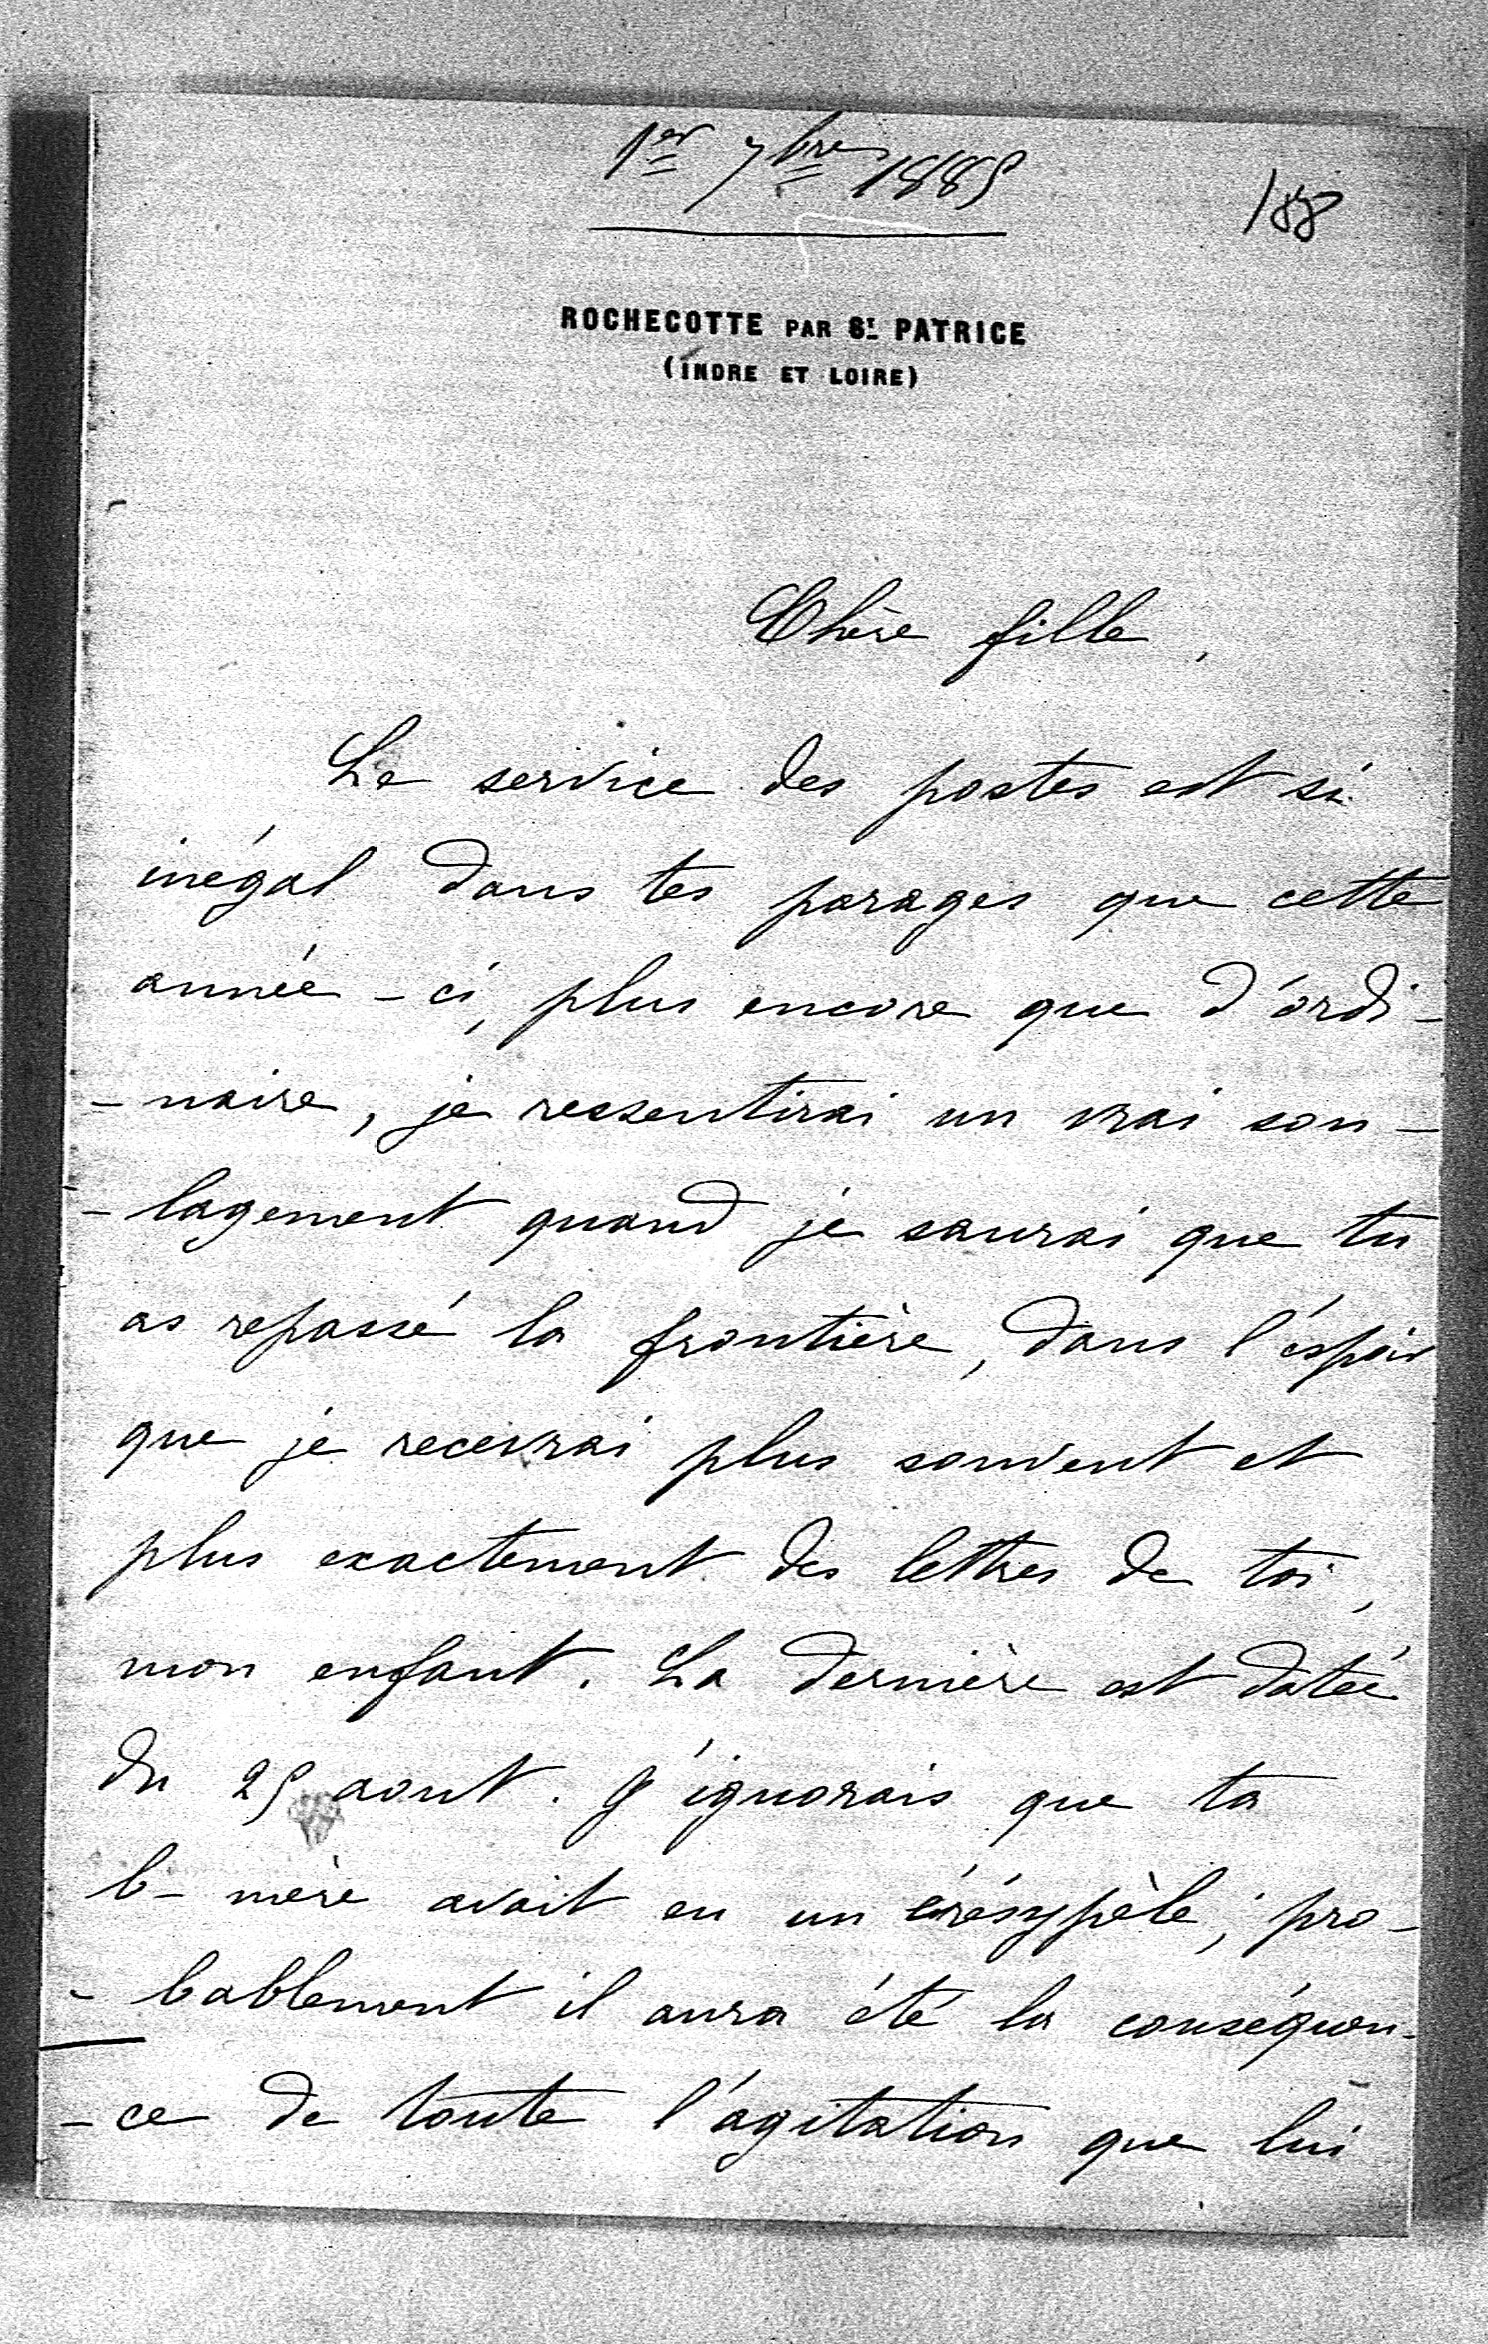 1er 7bre 1885
188
ROCHECOTTE PAR ST PATRICE
(INDRE ET LOIRE)
Chère fille,
Le service des postes est si
inégal dans tes parages que cette
année-ci, plus encore que d'ordi-
-naire, je ressentirai un vrai sou-
-lagement quand je saurai que tu
as repassé la frontière, dans l'éspoir
que je recevrai plus souvent et
plus exactement des lettres de toi,
mon enfant. La dernière est datée
du 25 aout. J'ignorais que ta
b-mère avait eu un érésypèle; pro-
-bablement il aura été la conséquen-
-ce de toute l'agitation que lui